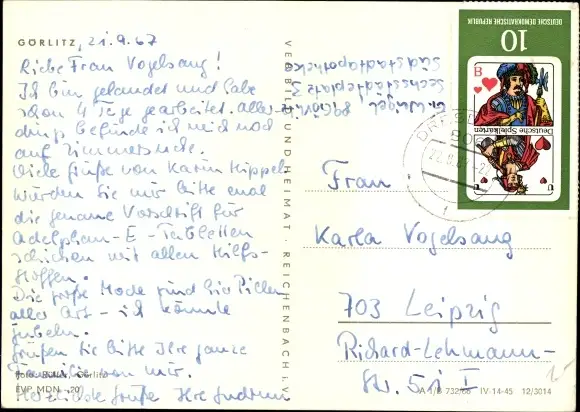 GÖRLITZ, 21.9.67
Liebe Frau Vogelsang!
Ich bin gelandet und habe
schon 4 Tage gearbeitet. Aller-
dings befinde ich mich noch
auf Zimmersuche.
Viele Grüße von Karin Hippel
würden Sie mir bitte mal
die genaue Vorschrift für
Adelphan-E-Tabletten
schicken mit allen Hilfs-
stoffen.
Die große Mode sind hier Pillen
aller Art - ich könnte
jubeln.
Grüßen Sie bitte Ihre ganze
Familie von mir.
Herzliche Grüße Ihre Gudrun
Foto: Görlitz
EVP MDN -,20
VERLAG BILD UND HEIMAT · REICHENBACH I. V.
Görlitz
Sechsstädteplatz 3
Südstadtapotheke
DEUTSCHE DEMOKRATISCHE REPUBLIK
10
B
Deutsche Spielkarten
U
Frau
Karla Vogelsang
703 Leipzig
Richard-Lehmann-
Str. 51 I
A 1/B 732/66 IV-14-45 12/3014